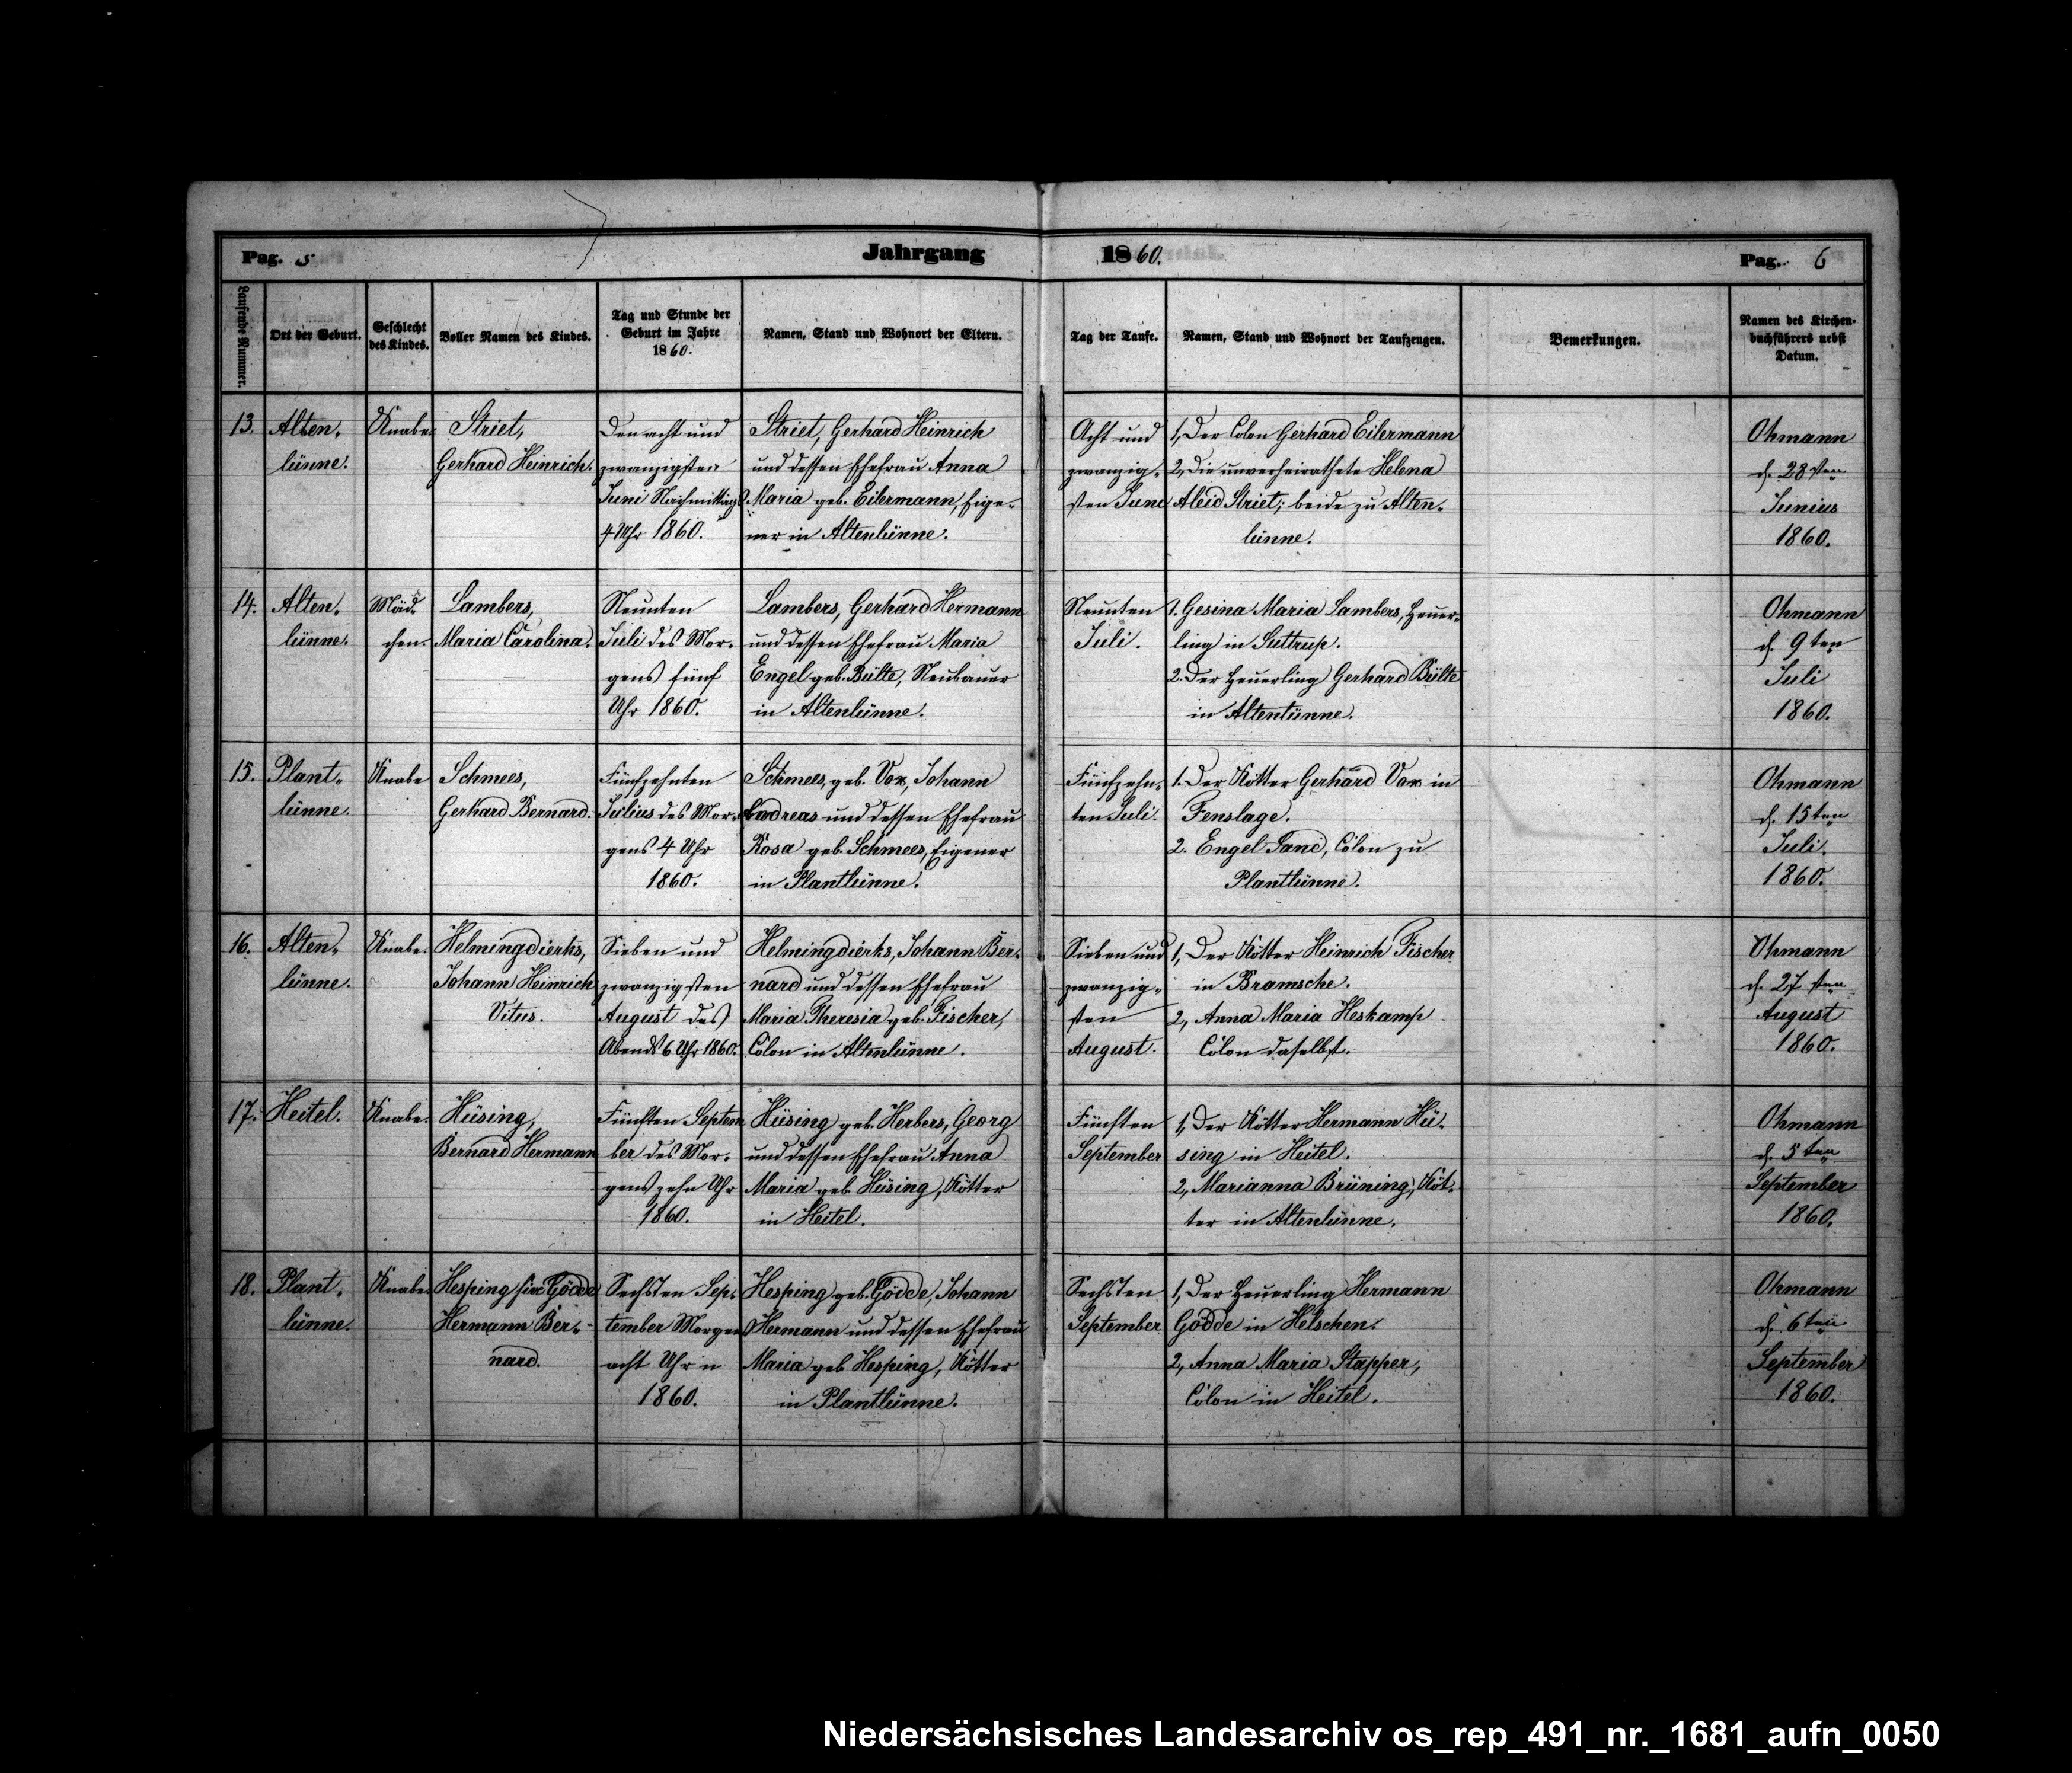 Pag. 5
Jahrgang 1860.
Pag. 6
Laufende Nummer.
Ort der Geburt.
Geschlecht
des Kindes.
Voller Namen des Kindes.
Tag und Stunde der
Geburt im Jahre
1860.
Namen, Stand und Wohnort der Eltern.
Tag der Taufe.
Namen, Stand und Wohnort der Taufzeugen.
Bemerkungen.
Namen des Kirchen-
buchführers nebst
Datum.
13.
Alten-
lünne.
Knabe.
Striet,
Gerhard Heinrich.
Den acht und
zwanzigsten
Juni Nachmittags
4 Uhr 1860.
Striet, Gerhard Heinrich
und dessen Ehefrau Anna
Maria geb. Eilermann, Eige-
ner in Altenlünne.
Acht und
zwanzig-
sten Juni
1, Der Colon Gerhard Eilermann
2, Die unverheirathete Helena
Aleid Striet; beide zu Alten-
lünne.
Ohmann
d. 28sten
Junius
1860.
14.
Alten-
lünne.
Mäd-
chen.
Lambers,
Maria Carolina.
Neunten
Juli des Mor-
gens fünf
Uhr 1860.
Lambers, Gerhard Hermann
und dessen Ehefrau Maria
Engel geb. Bülte, Neubauer
in Altenlünne.
Neunten
Juli.
1. Gesina Maria Lambers, Heuer-
ling in Suttrup.
2. Der Heuerling Gerhard Bülte
in Altenlünne.
Ohmann
d. 9ten
Juli
1860.
15.
Plant-
lünne.
Knabe
Schmees,
Gerhard Bernard.
Fünfzehnten
Julius des Mor-
gens 4 Uhr
1860.
Schmees, geb. Vox, Johann
Andreas und dessen Ehefrau
Rosa geb. Schmees, Eigener
in Plantlünne.
Fünfzehn-
ten Juli.
1. Der Kötter Gerhard Vox in
Fenslage.
2. Engel Sand, Colon zu
Plantlünne.
Ohmann
d. 15ten
Juli.
1860.
16.
Alten-
lünne.
Knabe.
Helmingdierks,
Johann Heinrich
Vitus.
Sieben und
zwanzigsten
August des
Abends 6 Uhr 1860.
Helmingdierks, Johann Ber-
nard und dessen Ehefrau
Maria Theresia geb. Fischer,
Colon in Altenlünne.
Sieben und
zwanzig-
sten
August.
1, Der Kötter Heinrich Fischer
in Bramsche.
2, Anna Maria Heskamp
Colon daselbst.
Ohmann
d. 27sten
August
1860.
17.
Heitel.
Knabe.
Hüsing,
Bernard Hermann
Fünften Septem
ber des Mor-
gens zehn Uhr
1860.
Hüsing geb. Herbers, Georg
und dessen Ehefrau Anna
Maria geb. Hüsing, Kötter
in Heitel.
Fünften
September
1, Der Kötter Hermann Hü-
sing in Heitel.
2, Marianna Brüning, Köt-
ter in Altenlünne.
Ohmann
d. 5ten
September
1860.
18.
Plant-
lünne.
Knabe.
Hesping sive Gödde
Hermann Ber-
nard.
Sechsten Sep-
tember Morgens
acht Uhr
1860.
Hesping geb. Gödde, Johann
Hermann und dessen Ehefrau
Maria geb Hesping, Kötter
in Plantlünne.
Sechsten
September
1, Der Heuerling Hermann
Gödde in Helschen.
2, Anna Maria Stapper,
Colon in Heitel.
Ohmann
d. 6ten
September
1860.
Niedersächsisches Landesarchiv os_rep_491_nr._1681_aufn_0050